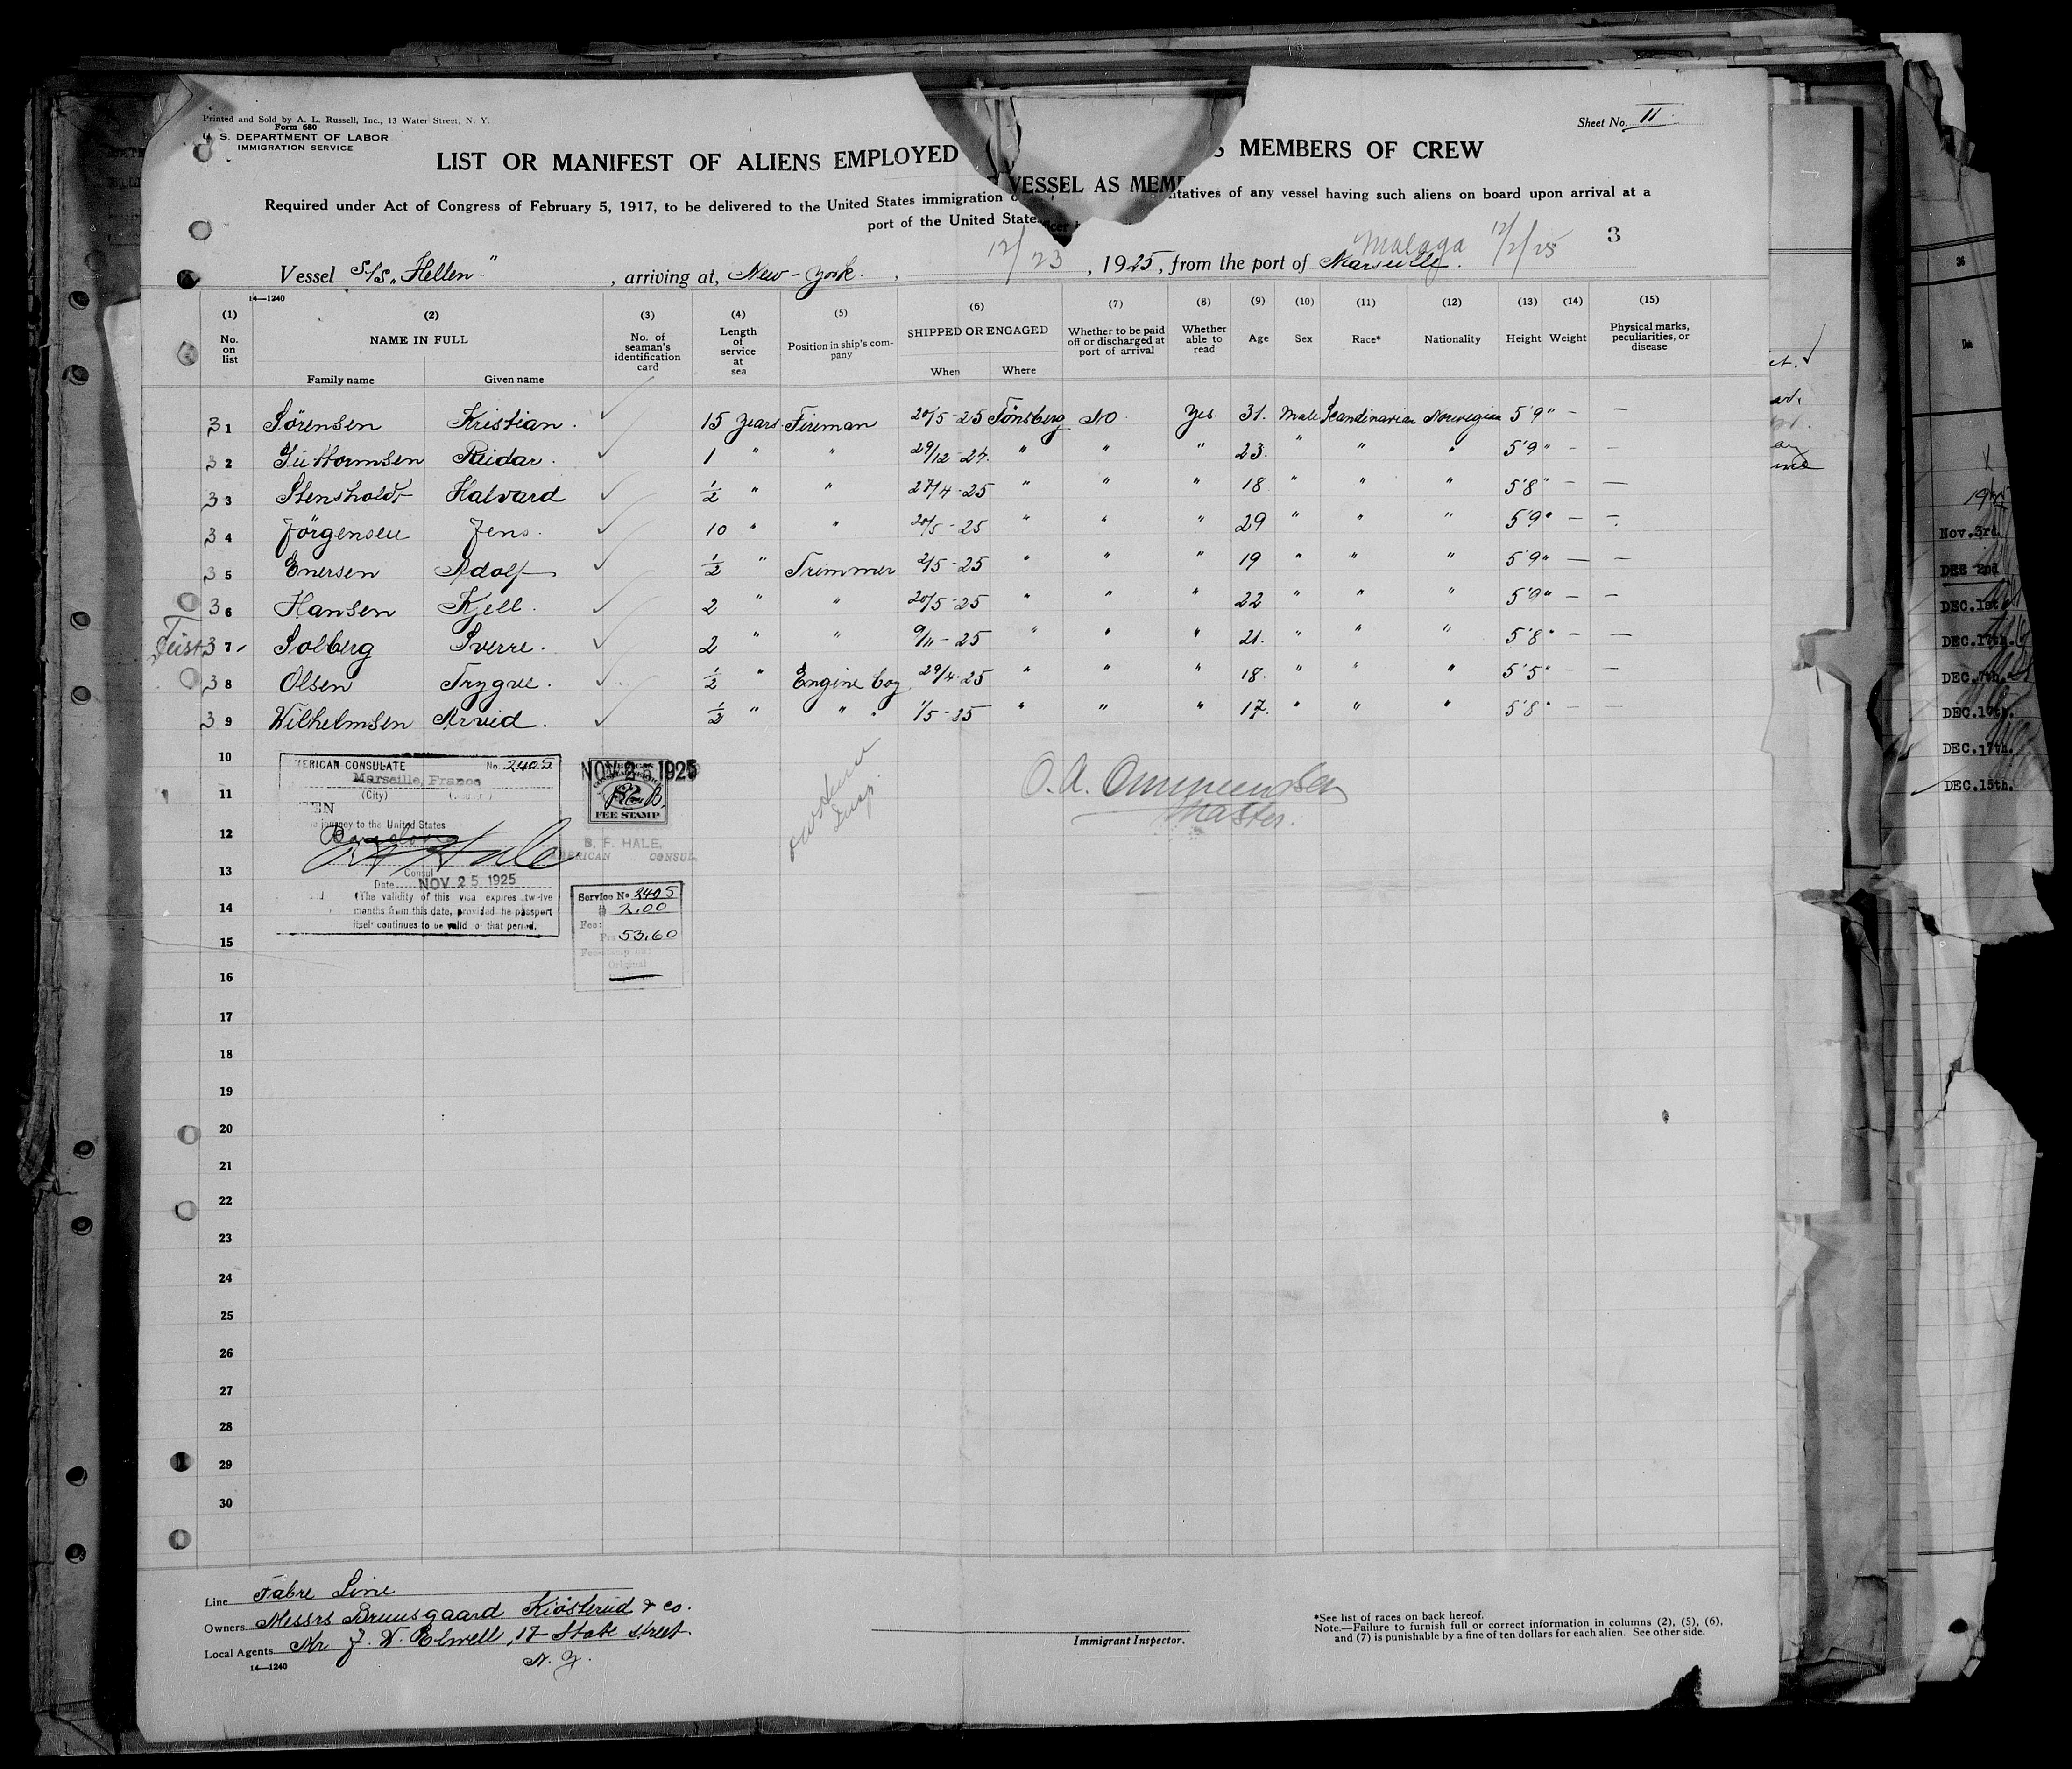 Printed and Sold by A. L. Russell, Inc., 13 Water Street, N. Y.
Form 680
U. S. DEPARTMENT OF LABOR
IMMIGRATION SERVICE
Sheet No. II
LIST OR MANIFEST OF ALIENS EMPLOYED S MEMBERS OF CREW
VESSEL AS MEMB
Required under Act of Congress of February 5, 1917, to be delivered to the United States immigration ntatives of any vessel having such aliens on board upon arrival at a
port of the United State
3
Malaga 12/2/25
Vessel S/S „Hellen", arriving at, New-York., 12/23, 1925, from the port of Marseille.
14—1240
(1) (2) (3) (4) (5) (6) (7) (8) (9) (10) (11) (12) (13) (14) (15)
No. on list NAME IN FULL No. of seaman's identification card Length of service at sea Position in ship's company SHIPPED OR ENGAGED Whether to be paid off or discharged at port of arrival Whether able to read Age Sex Race* Nationality Height Weight Physical marks, peculiarities, or disease
Family name Given name When Where
3 1 Sörensen Kristian. 15 years Fireman 20/5-25 Tönsberg NO. Yes. 31. Male Scandinavian Norwegian 5'9" - -
3 2 Guttormsen Reidar. 1 " " 29/12-24. " " " 23. " " " 5'9" - -
3 3 Stensholdt Halvard 1/2 " " 27/4-25 " " " 18 " " " 5'8" - -
3 4 Jörgensen Jens. 10 " " 20/5-25 " " " 29 " " " 5'9" - -
3 5 Enersen Adolf 1/2 " Trimmer 2/5-25 " " " 19 " " " 5'9" - -
3 6 Hansen Kjell. 2 " " 20/5-25 " " " 22 " " " 5'9" - -
3 7 Solberg Sverre. 2 " " 9/11-25 " " " 21. " " " 5'8" - -
3 8 Olsen Trygve. 1/2 " Engine boy 29/4-25 " " " 18. " " " 5'5" - -
3 9 Wilhelmsen Arvid. 1/2 " " " 1/5-25 " " " 17. " " " 5'8" - -
10
11
12
13
14
15
16
17
18
19
20
21
22
23
24
25
26
27
28
29
30
ERICAN CONSULATE No. 2405
Marseille, France
(City)
EN
journey to the United States
Hale
Consul
Date NOV 25 1925
(The validity of this visa expires twelve
months from this date, provided he passport
itself continues to be valid for that period.
NOV 25 1925
FEE STAMP
B. F. HALE,
AMERICAN CONSUL
Service No 2405
$ 2.00
Fee:
Frs 53.60
Original
O. A.
Master.
Line Fabre Line
Owners Messrs Bruusgaard Kiösterud & co.
Local Agents Mr J. W. Elwell, 17 State street
N. Y.
14—1240
Immigrant Inspector.
*See list of races on back hereof.
Note.—Failure to furnish full or correct information in columns (2), (5), (6),
and (7) is punishable by a fine of ten dollars for each alien. See other side.
36
Nov. 3rd.
DEC 2nd
DEC. 1st
DEC. 17th.
DEC. 7th.
DEC. 17th.
DEC. 17th.
DEC. 15th.